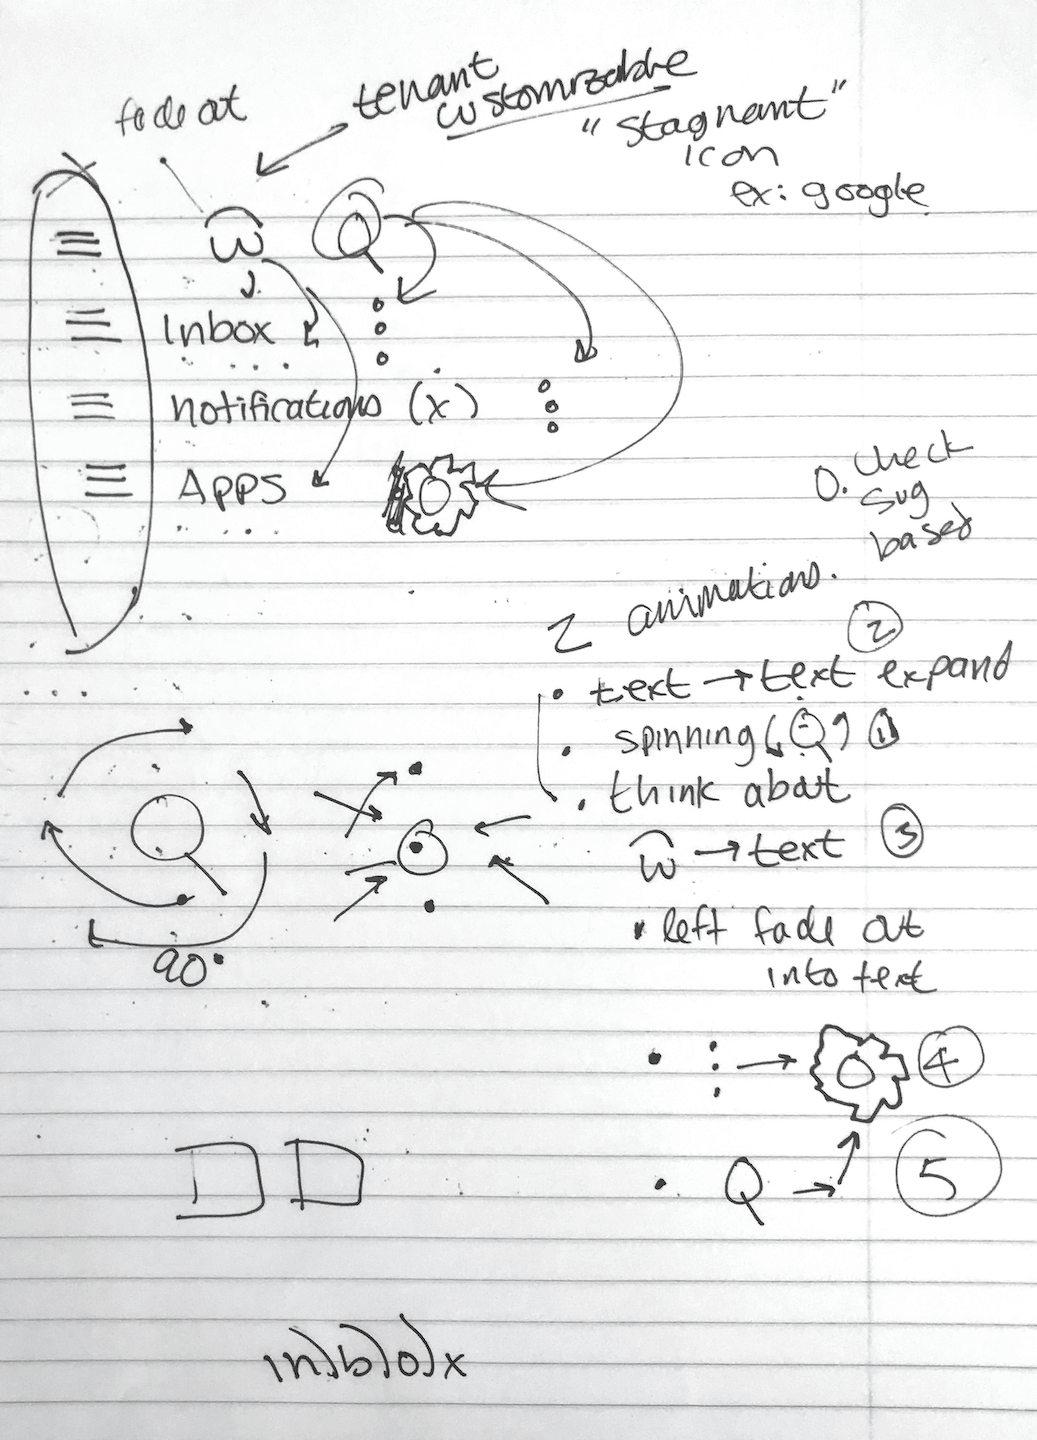 fade out
tenant
customizable
"stagnant"
icon
ex: google
w
Inbox
notifications (x)
Apps
0. check
svg
based
2 animations.
2
• text → text expand
• spinning ( ) 1
• think about
w → text 3
• left fade out
into text
90°
• → 4
• → 5
in)b)o)x